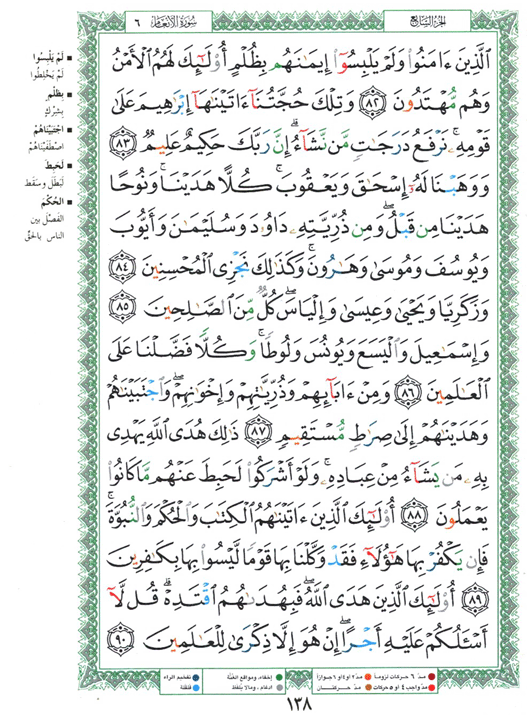 الجزء السابع
سورة الأنعام ٦
الَّذِينَ ءَامَنُوا۟ وَلَمْ يَلْبِسُوٓا۟ إِيمَٰنَهُم بِظُلْمٍ أُو۟لَٰٓئِكَ لَهُمُ الْأَمْنُ
وَهُم مُّهْتَدُونَ ٨٢ وَتِلْكَ حُجَّتُنَآ ءَاتَيْنَٰهَآ إِبْرَٰهِيمَ عَلَىٰ
قَوْمِهِۦ ۚ نَرْفَعُ دَرَجَٰتٍ مَّن نَّشَآءُ ۗ إِنَّ رَبَّكَ حَكِيمٌ عَلِيمٌ ٨٣
وَوَهَبْنَا لَهُۥٓ إِسْحَٰقَ وَيَعْقُوبَ ۚ كُلًّا هَدَيْنَا ۚ وَنُوحًا
هَدَيْنَا مِن قَبْلُ ۖ وَمِن ذُرِّيَّتِهِۦ دَاوُۥدَ وَسُلَيْمَٰنَ وَأَيُّوبَ
وَيُوسُفَ وَمُوسَىٰ وَهَٰرُونَ ۚ وَكَذَٰلِكَ نَجْزِى الْمُحْسِنِينَ ٨٤
وَزَكَرِيَّا وَيَحْيَىٰ وَعِيسَىٰ وَإِلْيَاسَ ۖ كُلٌّ مِّنَ الصَّٰلِحِينَ ٨٥
وَإِسْمَٰعِيلَ وَالْيَسَعَ وَيُونُسَ وَلُوطًا ۚ وَكُلًّا فَضَّلْنَا عَلَى
الْعَٰلَمِينَ ٨٦ وَمِنْ ءَابَآئِهِمْ وَذُرِّيَّٰتِهِمْ وَإِخْوَٰنِهِمْ ۖ وَاجْتَبَيْنَٰهُمْ
وَهَدَيْنَٰهُمْ إِلَىٰ صِرَٰطٍ مُّسْتَقِيمٍ ٨٧ ذَٰلِكَ هُدَى اللَّهِ يَهْدِى
بِهِۦ مَن يَشَآءُ مِنْ عِبَادِهِۦ ۚ وَلَوْ أَشْرَكُوا۟ لَحَبِطَ عَنْهُم مَّا كَانُوا۟
يَعْمَلُونَ ٨٨ أُو۟لَٰٓئِكَ الَّذِينَ ءَاتَيْنَٰهُمُ الْكِتَٰبَ وَالْحُكْمَ وَالنُّبُوَّةَ ۚ
فَإِن يَكْفُرْ بِهَا هَٰٓؤُلَآءِ فَقَدْ وَكَّلْنَا بِهَا قَوْمًا لَّيْسُوا۟ بِهَا بِكَٰفِرِينَ
٨٩ أُو۟لَٰٓئِكَ الَّذِينَ هَدَى اللَّهُ ۖ فَبِهُدَىٰهُمُ اقْتَدِهْ ۗ قُل لَّآ
أَسْـَٔلُكُمْ عَلَيْهِ أَجْرًا ۖ إِنْ هُوَ إِلَّا ذِكْرَىٰ لِلْعَٰلَمِينَ ٩٠
■ لَمْ يَلْبِسُوا
لَمْ يَخْلِطُوا
■ بِظُلْمٍ
بِشِرْكٍ
■ اجْتَبَيْنَاهُمْ
اصْطَفَيْنَاهُمْ
■ لَحَبِطَ
لَبَطَلَ وَسَقَطَ
■ الْحُكْمَ
الفَصْلَ بين
الناس بالحقِّ
مدّ ٦ حركات لزوماً مدّ ٢ أو ٤ أو ٦ جوازاً إخفاء، ومواقع الغنّة تفخيم الراء
مدّ واجب ٤ أو ٥ حركات مدّ حركتان إدغام، وما لا يُلفظ قلقلة
١٣٨